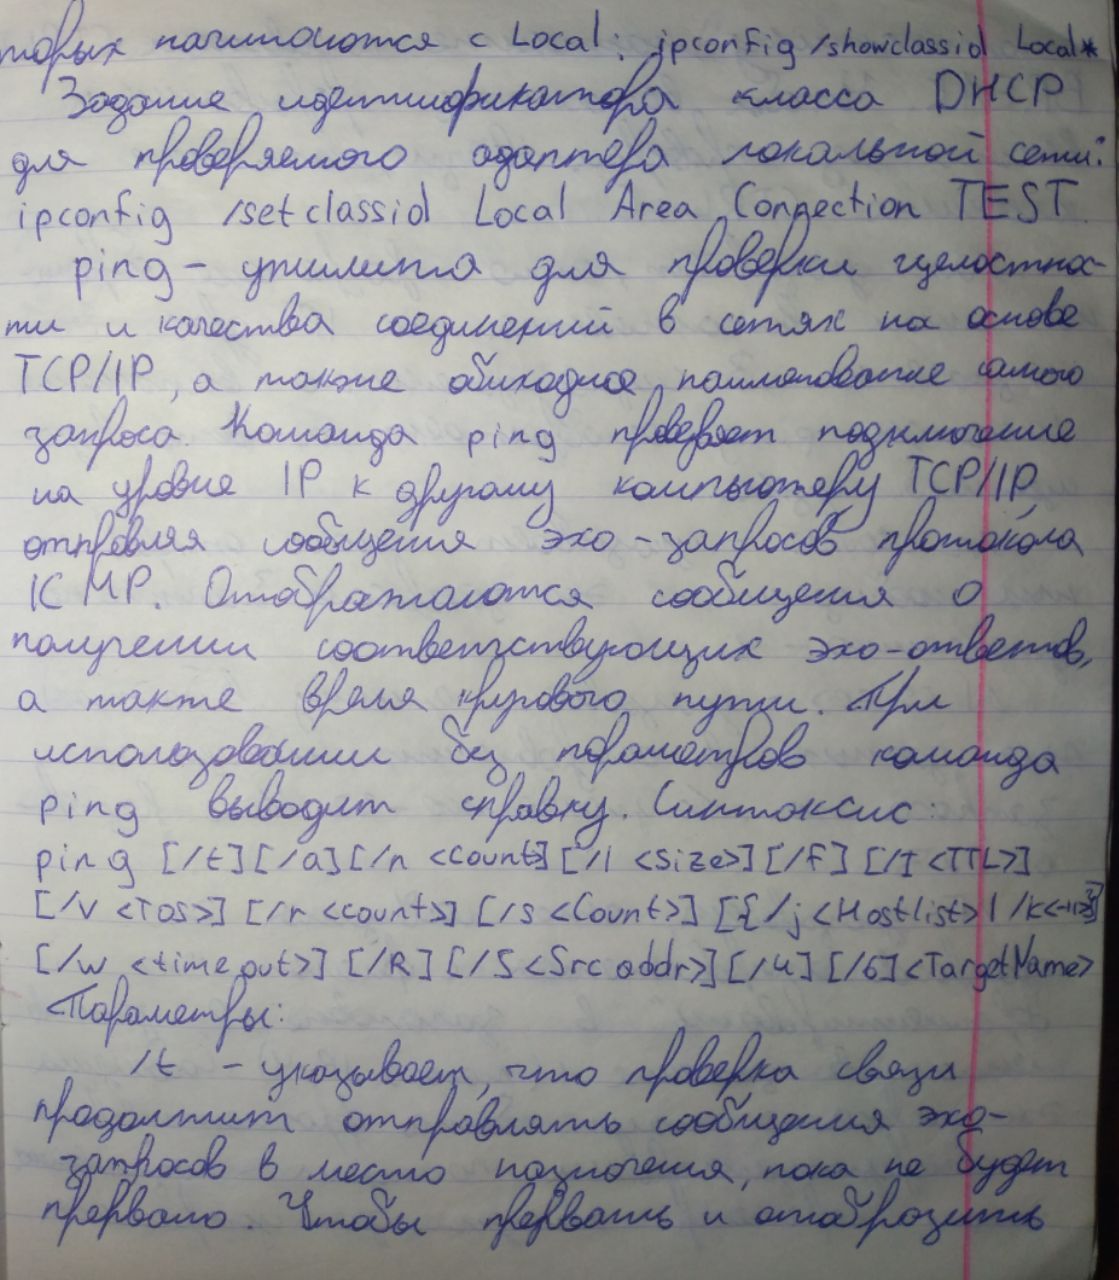 торых начинаются с Local: ipconfig /showclassid Local*
Задание идентификатора класса DHCP
для проверяемого адаптера локальной сети:
ipconfig /setclassid Local Area Connection TEST.
ping – утилита для проверки целостнос-
ти и качества соединений в сетях на основе
TCP/IP, а также обиходное наименование самого
запроса. Команда ping проверяет подключение
на уровне IP к другому компьютеру TCP/IP,
отправляя сообщения эхо-запросов протокола
ICMP. Отображаются сообщения о
получении соответствующих эхо-ответов,
а также время кругового пути. При
использовании без параметров команда
ping выводит справку. Синтаксис:
ping [/t] [/a] [/n <count] [/l <size>] [/f] [/I <TTL>]
[/v <TOS>] [/r <count>] [/s <Count>] [{/j <Hostlist> | /k<-11->}]
[/w <timeout>] [/R] [/S <Src addr>] [/4] [/6] <TargetName>
Параметры:
/t – указывает, что проверка связи
продолжит отправлять сообщения эхо-
запросов в место назначения, пока не будет
прервано. Чтобы прервать и отобразить